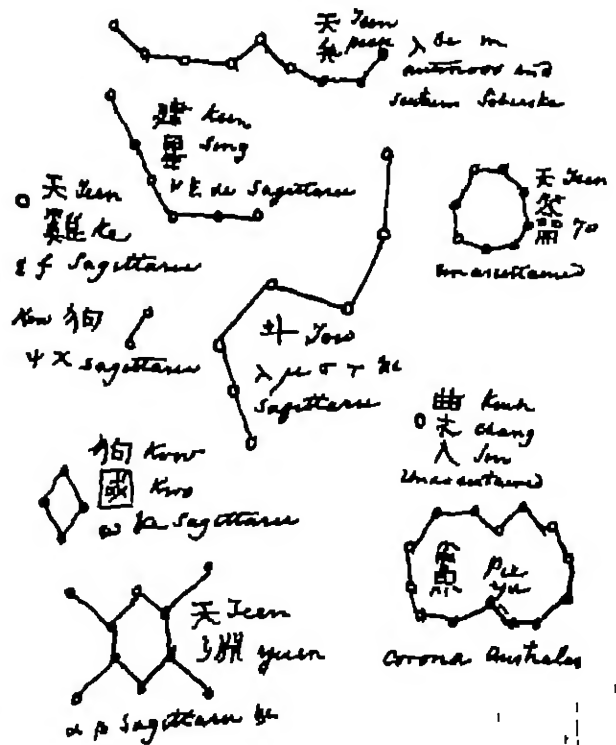 天 Teen
弁 peen λ &c in
antinoos and
scutum Sobieske
建 Keen
星 Sing
ν ξ &c Sagittarii
天 Teen
雞 Ke
f Sagittarii
天 Teen
籥 yo
unascertained
Kow 狗
ψ χ Sagittarii
斗 Tow
λ μ σ τ &c
Sagittarii
農
丈 chang
人 Jin
Unascertained
狗 Kow
國 Kwo
ω &c Sagittarii
鼈
Corona Australes
天 Teen
淵 yuen
α β Sagittarii &c